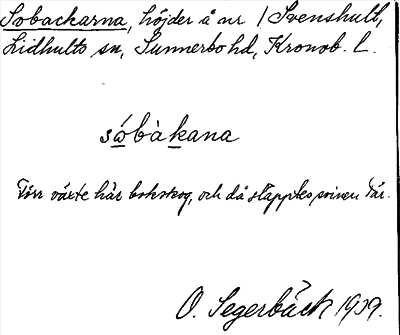 Sobackarna, höjder å nr 1 Svenshult,
Lidhults sn, Sunnerbo hd, Kronob. L.
sóbàkana
Förr växte här bokskog, och då släpptes svinen där.
O. Segerbäck 1909.